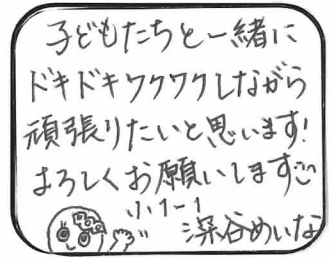 子どもたちと一緒に
ドキドキワクワクしながら
頑張りたいと思います!
よろしくお願いします
小1-1
深谷めいな